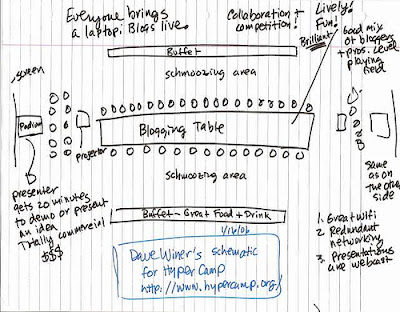 Everyone brings
a laptop! Blogs live.
Collaboration +
competition!
Lively!
Fun!
Brilliant
Good mix
of bloggers
+ pros. Level
playing
field
Buffet
schmoozing area
screen
Podium
projector
Blogging Table
schmoozing area
presenter
gets 20 minutes
to demo or present
an idea
Totally commercial
$$$
same
as on
the other
side
Buffet - Great Food + Drink
1/16/06
Dave Winer's schematic
for Hyper Camp
http://www.hypercamp.org/
1. Great wifi
2. Redundant
networking
3. Presentations
are webcast